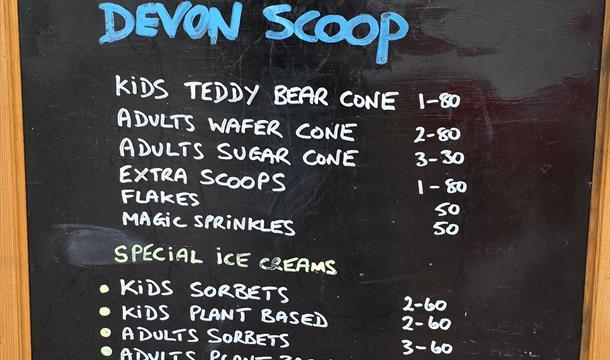 DEVON SCOOP
KIDS TEDDY BEAR CONE 1-80
ADULTS WAFER CONE 2-80
ADULTS SUGAR CONE 3-30
EXTRA SCOOPS 1-80
FLAKES 50
MAGIC SPRINKLES 50
SPECIAL ICE CREAMS
• KIDS SORBETS 2-60
• KIDS PLANT BASED 2-60
• ADULTS SORBETS 3-60
• ADULTS PLANT